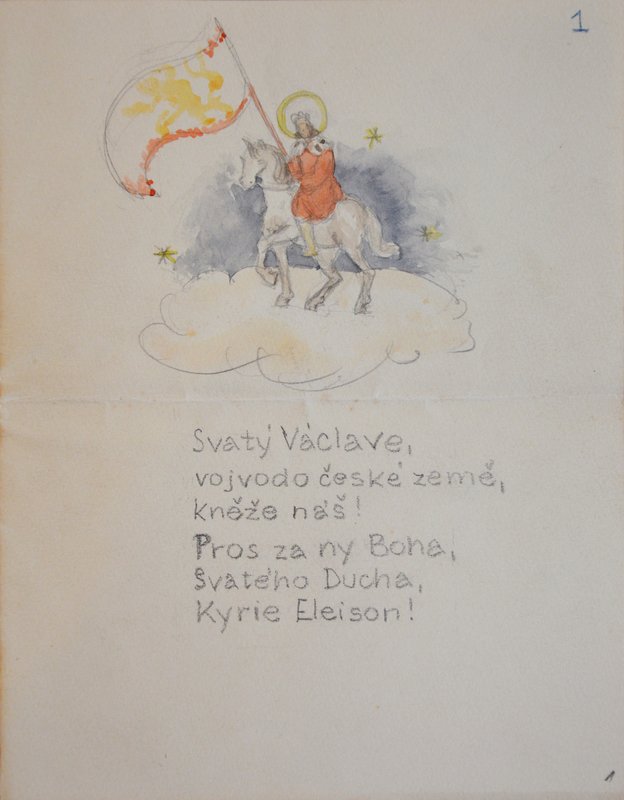 1
Svatý Václave,
vojvodo české země,
kněže náš!
Pros za ny Boha,
Svatého Ducha,
Kyrie Eleison!
1